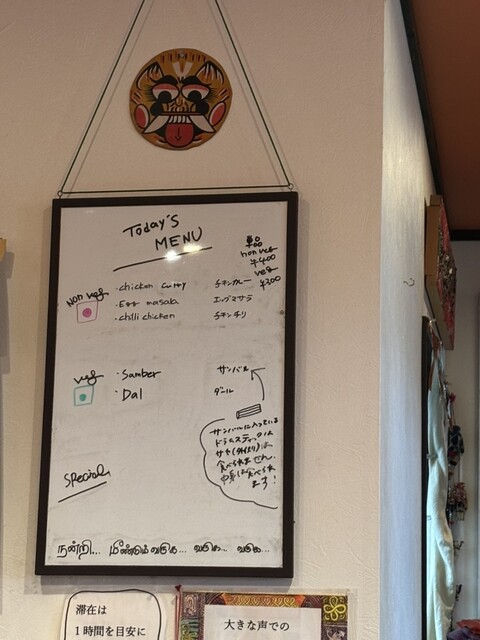 Today's
MENU
単品
non veg
¥400
veg
¥200
Non veg
・chicken curry チキンカレー
・Egg masala エッグマサラ
・chilli chicken チキンチリ
veg
・Samber サンバル
・Dal ダール
サンバルに入っている
ドラムスティックは
サヤ(外側)は
食べられません。
中身は食べられ
ます!
Special
நன்றி... மீண்டும் வருக... வருக... வருக...
滞在は
1時間を目安に
大きな声での